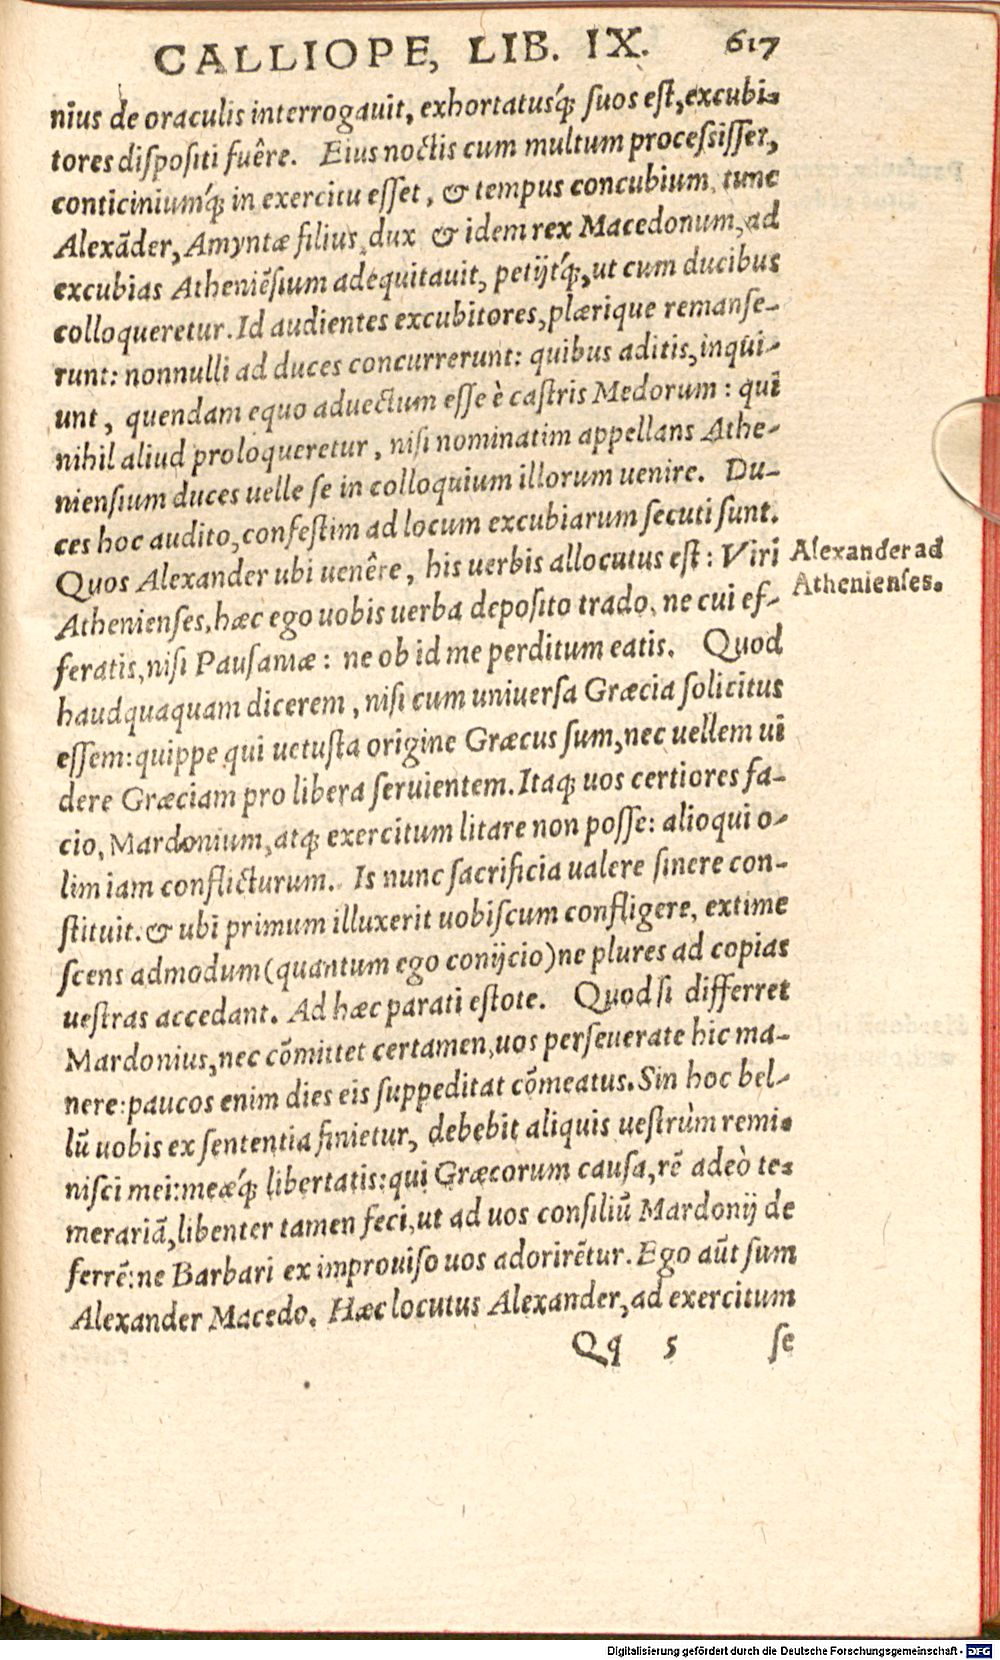 CALLIOPE, LIB. IX. 617
nius de oraculis interrogauit, exhortatusq́; suos est, excubi-
tores dispositi fuêre. Eius noctis cum multum processisset,
conticiniumq́; in exercitu esset, & tempus concubium, tunc
Alexãder, Amyntæ filius, dux & idem rex Macedonum, ad
excubias Atheniẽsium adequitauit, petijtq́;, ut cum ducibus
colloqueretur. Id audientes excubitores, plærique remanse-
runt: nonnulli ad duces concurrerunt: quibus aditis, inqui-
unt, quendam equo aduectum esse è castris Medorum: qui
nihil aliud proloqueretur, nisi nominatim appellans Athe-
niensium duces uelle se in colloquium illorum uenire. Du-
ces hoc audito, confestim ad locum excubiarum secuti sunt.
Quos Alexander ubi uenêre, his uerbis allocutus est: Viri
Alexander ad
Athenienses.
Athenienses, hæc ego uobis uerba deposito trado, ne cui ef-
feratis, nisi Pausaniæ: ne ob id me perditum eatis. Quod
haudquaquam dicerem, nisi cum uniuersa Græcia solicitus
essem: quippe qui uetusta origine Græcus sum, nec uellem ui
dere Græciam pro libera seruientem. Itaq; uos certiores fa-
cio, Mardonium, atq; exercitum litare non posse: alioqui o-
lim iam conflicturum. Is nunc sacrificia ualere sinere con-
stituit. & ubi primum illuxerit uobiscum confligere, extime
scens admodum (quantum ego conijcio) ne plures ad copias
uestras accedant. Ad hæc parati estote. Quod si differret
Mardonius, nec cõmittet certamen, uos perseuerate hic ma-
nere: paucos enim dies eis suppeditat cõmeatus. Sin hoc bel-
lũ uobis ex sententia finietur, debebit aliquis uestrùm remi-
nisci mei: meæq́; libertatis: qui Græcorum causa, rẽ adeò te-
merariã, libenter tamen feci, ut ad uos consiliũ Mardonij de
ferrẽ: ne Barbari ex improuiso uos adorirẽtur. Ego aũt sum
Alexander Macedo. Hæc locutus Alexander, ad exercitum
Qq 5 se
Digitalisierung gefördert durch die Deutsche Forschungsgemeinschaft - DFG